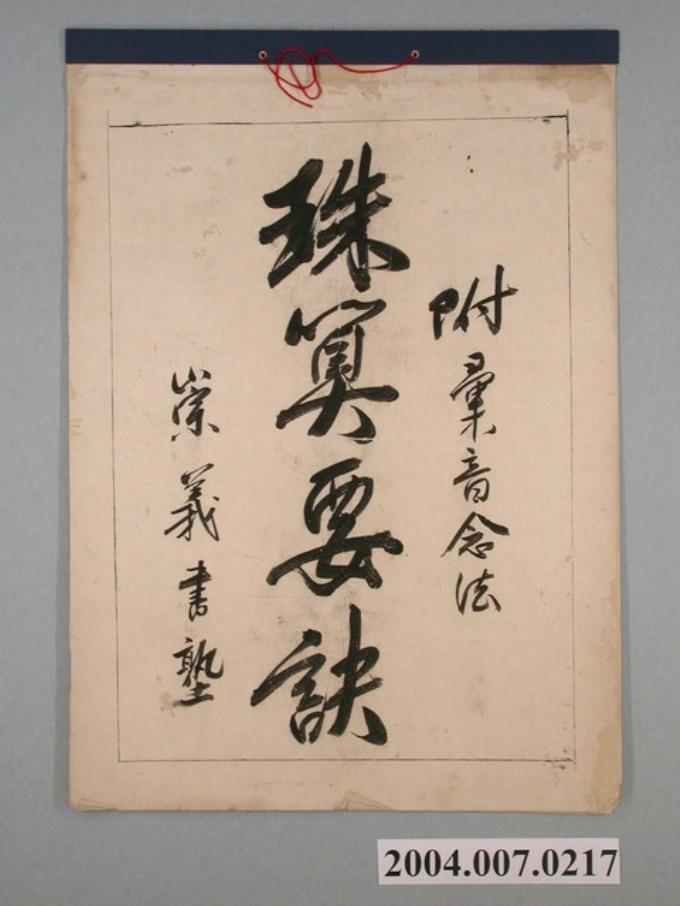 附彙音念法
珠算要訣
崇義書塾
2004.007.0217